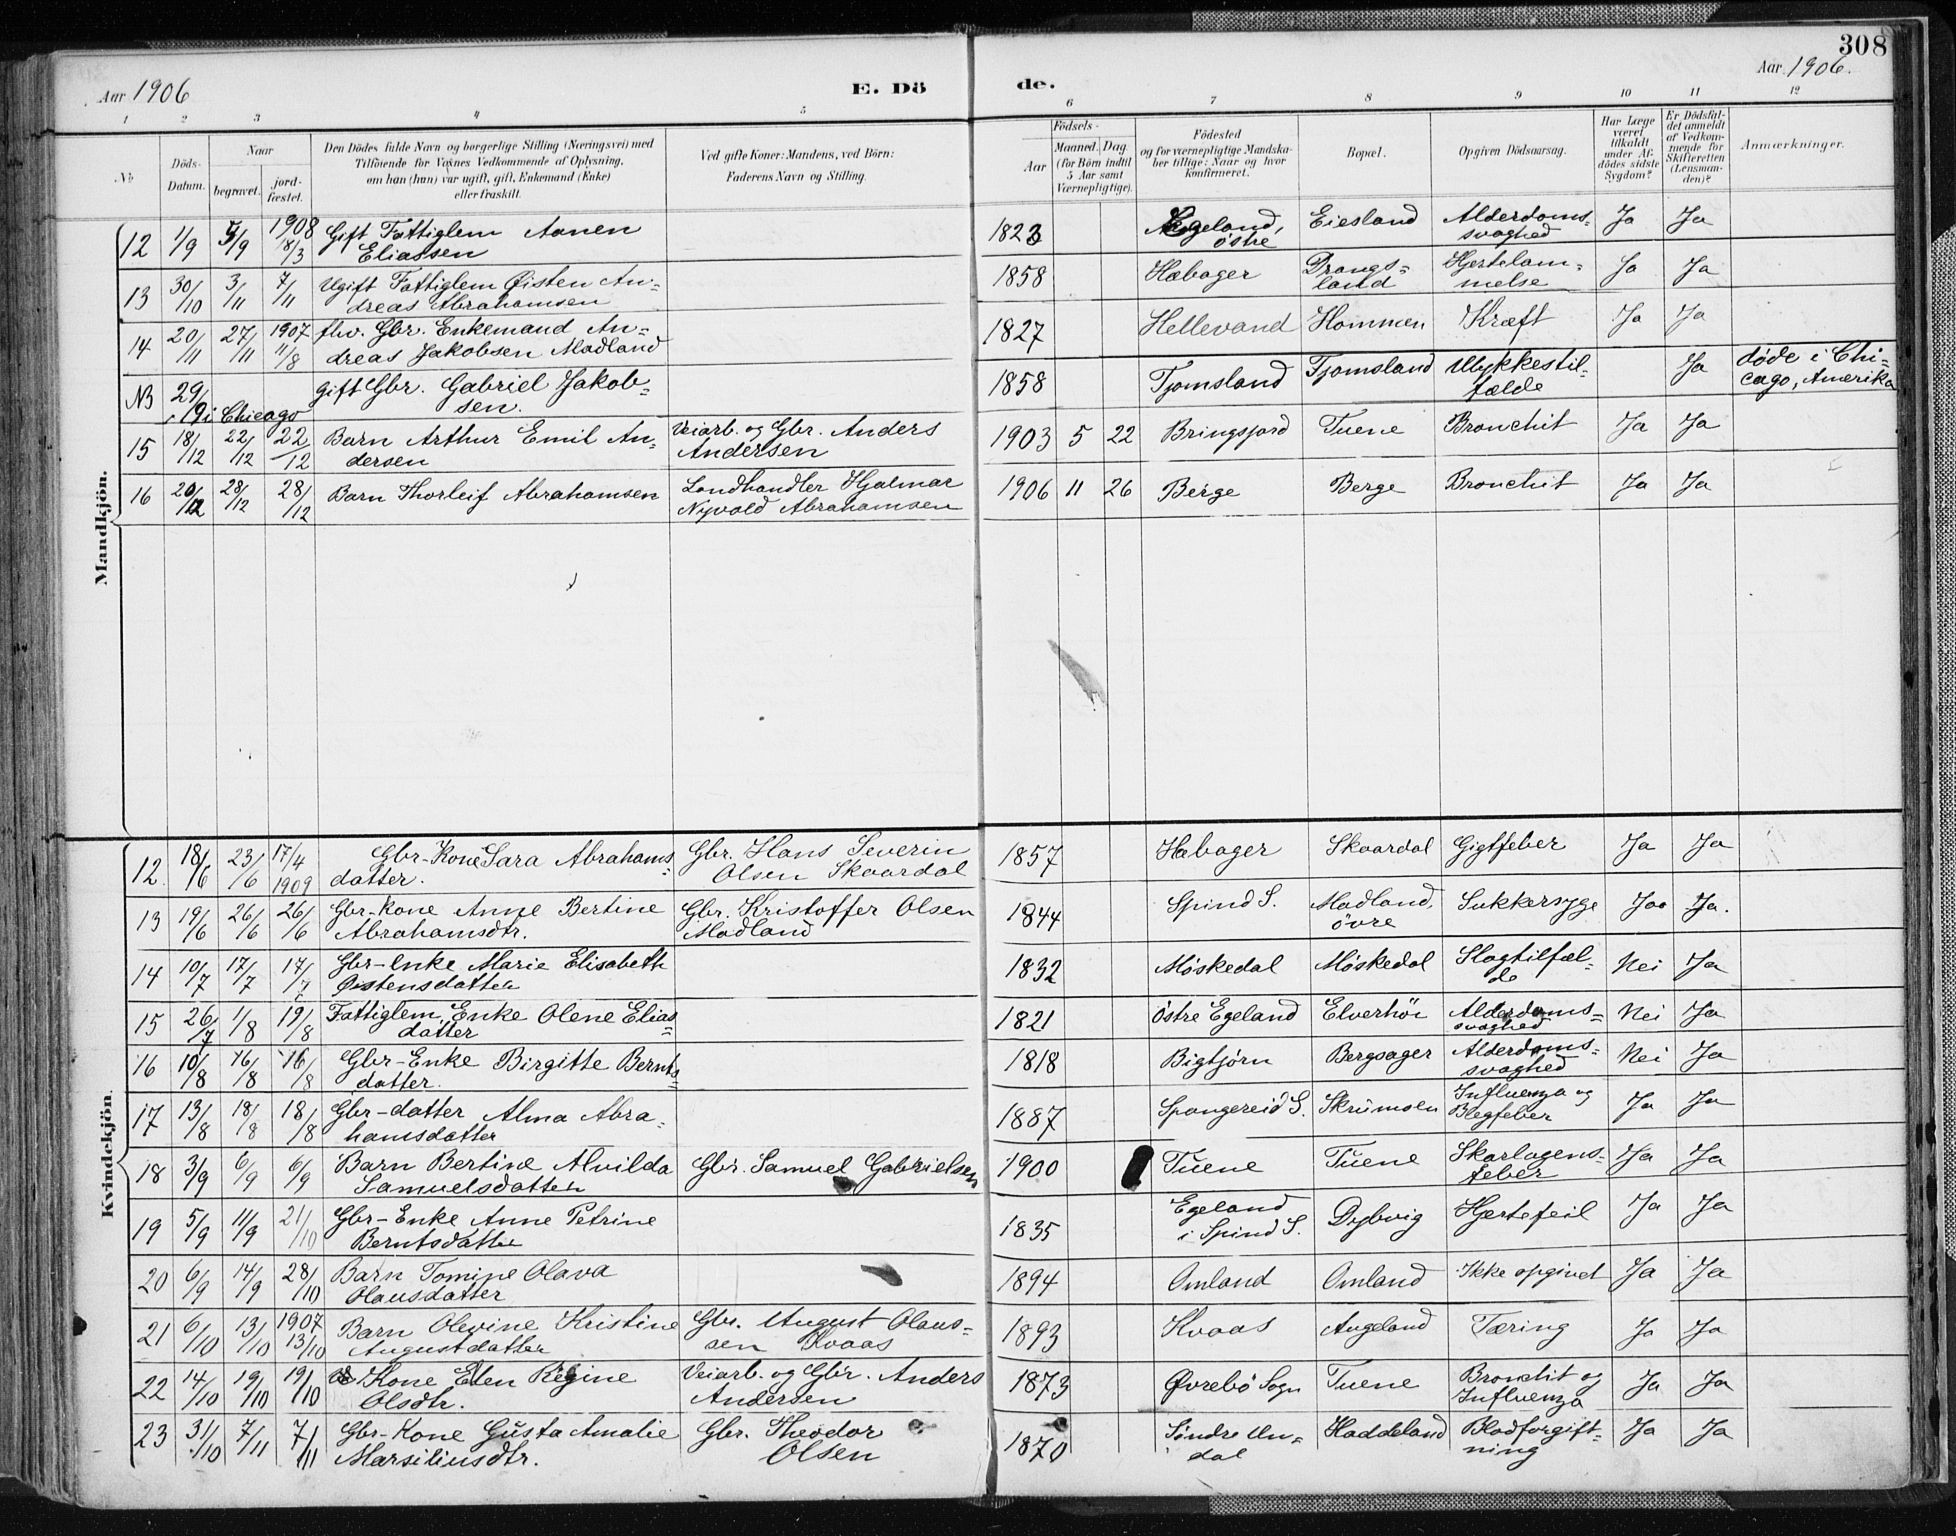 308
Aar 1906
E. Dö
de.
Aar 1906.
1 2 3 4 5 6 7 8 9 10 11 12
No
Döds-
Datum.
Naar
begravet.
jord-
fæstet.
Den Dödes fulde Navn og borgerlige Stilling (Næringsvei) med
Tilföiende for Voxnes Vedkommende af Oplysning,
om han (hun) var ugift, gift, Enkemand (Enke)
eller fraskilt.
Ved gifte Koner: Mandens, ved Börn:
Faderens Navn og Stilling.
Födsels-
Aar
Maaned. Dag
(for Börn indtil
5 Aar samt
Værnepligtige).
Födested
og for værnepligtige Mandska-
ber tillige: Naar og hvor
konfirmeret.
Bopæl.
Opgiven Dödsaarsag.
Har Læge
været
tilkaldt
under Af-
dödes sidste
Sygdom?
Er Dödsfal-
det anmeldt
af Vedkom-
mende for
Skifteretten
(Lensman-
den)?
Anmærkninger.
Mandkjön.
12 1/9 5/9 1908 8/3 Gift Fattiglem Aanen
Eliassen
1823 Egeland, östre Eiesland Alderdoms-
svaghed Ja Ja
13 30/10 3/11 7/11 Ugift Fattiglem Øisten An-
dreas Abrahamsen
1858 Hæbager Drangs-
land Hjertelam-
melse Ja Ja
14 20/11 27/11 1907 11/8 fhv. Gbr. Enkemand An-
dreas Jakobsen Madland
1827 Hellevand Hommen Kræft Ja Ja
NB 29/9 i Chicago gift Gbr. Gabriel Jakob-
sen.
1858 Tjomsland Tjomsland Ulykkestil-
fælde Ja døde i Chi-
cago, Amerika
15 18/12 22/12 22/12 Barn Arthur Emil An-
dersen
Veiarb. og Gbr. Anders
Andersen
1903 5 22 Bringsjord Tuene Bronchit Ja Ja
16 20/12 28/12 28/12 Barn Thorleif Abrahamsen
Landhandler Hjalmar
Nyvold Abrahamsen
1906 11 26 Berge Berge Bronchit Ja Ja
Kvindekjön.
12 18/6 23/6 17/4 1909 Gbr-Kone Sara Abrahams-
datter.
Gbr. Hans Severin
Olsen Skaardal
1857 Hæbager Skaardal Gigtfeber Ja Ja
13 19/6 26/6 26/6 Gbr-Kone Anne Bertine
Abrahamsdtr.
Gbr. Kristoffer Olsen
Madland
1844 Spind S. Madland,
övre Sukkersyge Ja Ja.
14 10/7 17/7 17/7 Gbr-Enke Marie Elisabeth
Øistensdatter
1832 Møskedal Møskedal Slagtilfæl-
de Nei Ja
15 26/7 1/8 19/8 Fattiglem, Enke Olene Elias-
datter
1821 östre Egeland Elverhöi Alderdoms-
svaghed Nei Ja
16 10/8 16/8 16/8 Gbr-Enke Birgitte Bernts-
datter.
1818 Bigtjørn Bergsager Alderdoms-
svaghed Nei Ja
17 13/8 18/8 18/8 Gbr-datter Alma Abra-
hamsdatter
1887 Spangereid S. Skrumsen Influenza og
Blegfeber Ja Ja
18 3/9 6/9 6/9 Barn Bertine Alvilda
Samuelsdatter
Gbr. Samuel Gabrielsen
1900 Tuene Tuene Skarlagens-
feber Ja Ja
19 5/9 11/9 21/10 Gbr-Enke Anne Petrine
Berntsdatter
1835 Egeland
i Spind S. Dybvig Hjertefeil Ja Ja
20 6/9 14/9 28/10 Barn Tomine Olava
Olausdatter
1894 Omland Omland Ikke opgivet Ja Ja
21 6/10 13/10 1907 13/10 Barn Olevine Kristine
Augustdatter
Gbr. August Olaus-
sen Kvaas
1893 Kvaas Augeland Tæring Ja Ja
22 14/10 19/10 19/10 Kone Ellen Regine
Olsdtr.
Veiarb. og Gbr. Anders
Andersen
1873 Øvrebö Sogn Tuene Bronchit og
Influenza Ja Ja
23 31/10 7/11 7/11 Gbr-Kone Gusta Amalie
Marsiliusdtr.
Gbr. Theodor
Olsen
1870 Söndre Un-
dal Haddeland Blodforgift-
ning Ja Ja